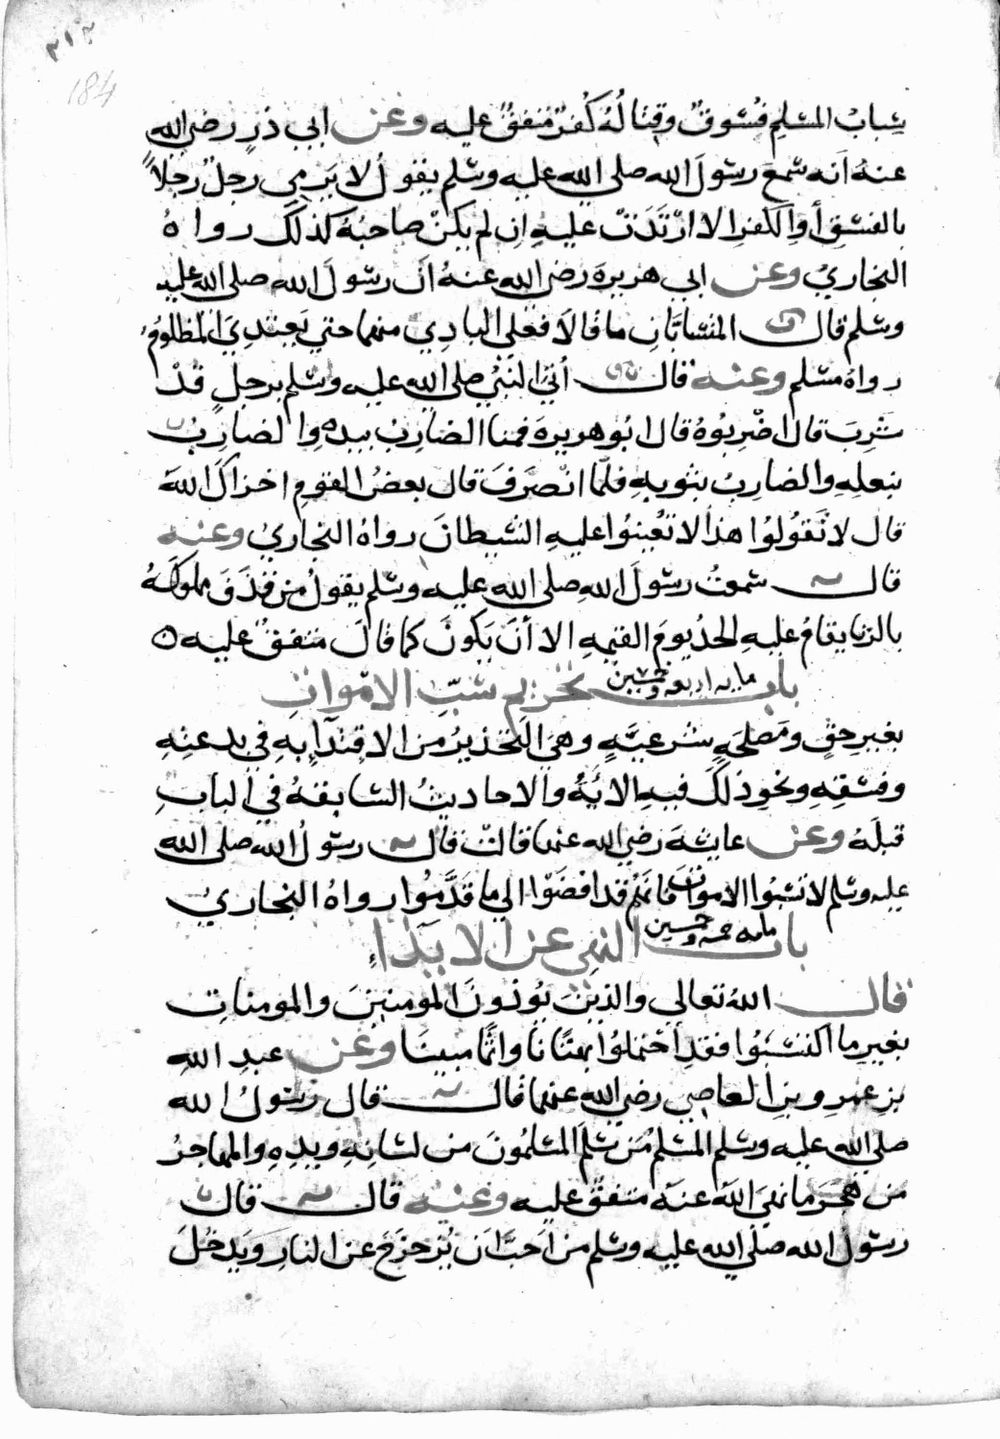 ٢١٣
184
سِبابُ المسْلِم فُسُوقٌ وقِتالُهُ كُفْرٌ مُتفقٌ عليه وعن ابي ذرٍ رضي الله
عنهُ اَنه سَمعَ رسُولَ الله صلى الله عليه وسَلم يقولُ لا يَرمي رجلٌ رجلاً
بالفسْقِ أوِ الكفرِ الا ارْتَدَتْ عليهِ ان لم يكنْ صاحبُهُ كذلكَ رواهُ
البخاريُ وعن ابي هريرةَ رضي الله عنهُ اَن رسُولَ الله صلى الله عليه
وسَلم قال المتسَابَّانِ ما قالاَ فعلى البادِي منهما حتي يَعتدِيَ المظلومُ
رواهُ مسْلم وعنه قال أتِيَ النَبيُ صلى الله عليه وسَلم برجلٍ قدْ
شَرِبَ قال اضْرِبُوهُ قال ابُو هريرةَ فمنا الضاربُ بيدهِ والضاربُ
بنعلِهِ والضاربُ بثوبِهِ فلَما انْصَرفَ قال بعضُ القومِ اخزاكَ اللهُ
قال لا تَقولُوا هذا لا تُعينُوا عليهِ الشيطانَ رواهُ البخاريُ وعنه
قال سَمعتُ رسُولَ اللهِ صلى الله عليه وسَلم يقولُ من قذَفَ مملوكَهُ
بالزنا يقامُ عليهِ الحدُ يومَ القيمةِ الا أنَ يَكونَ كما قالَ متفقٌ عليه ٥
باب مايه اربعه وخمسين تحريم سَبِّ الاموات
بغيرِ حقٍ ومَصْلحَةٍ شرعيَّةٍ وهيَ التحذيرُ منَ الاقتدآءِ بهِ في بدعتِهِ
وفسْقِهِ ونحوِ ذلكَ فيهِ الايَةُ والاحاديثُ السَابقةُ في البابِ
قبلَهُ وعن عايشةَ رضي الله عنها قالتْ قال رسُولُ الله صلى الله
عليه وسَلم لا تسُبُوا الامواتَ فانَهُم قد افضَوْا الي ما قَدَّمُوا رواهُ البخاريُ
باب مايه خمسه وخمسين النهي عن الايذاءِ
قال اللهُ تعالى والذينَ يُوذونَ المومنينَ والمومناتِ
بغيرِ ما اكتسَبُوا فقدِ احْتملوُا بهتَاناً واثماً مبيناً وعن عبدِ الله
بن عمرِو بنِ العاصي رضي الله عنهما قال قال رسُولُ الله
صلى الله عليه وسَلم المسْلمُ مَن سَلِمَ المسْلمُونَ من لسَانِهِ ويدِهِ والمهاجرُ
من هجَرَ ما نهيَ اللهُ عنهُ متفقٌ عليه وعنه قال قال
رسُولُ الله صلي الله عليه وسَلم من اَحبَّ اَن يُزحزَحَ عن النارِ وَيَدخُلَ